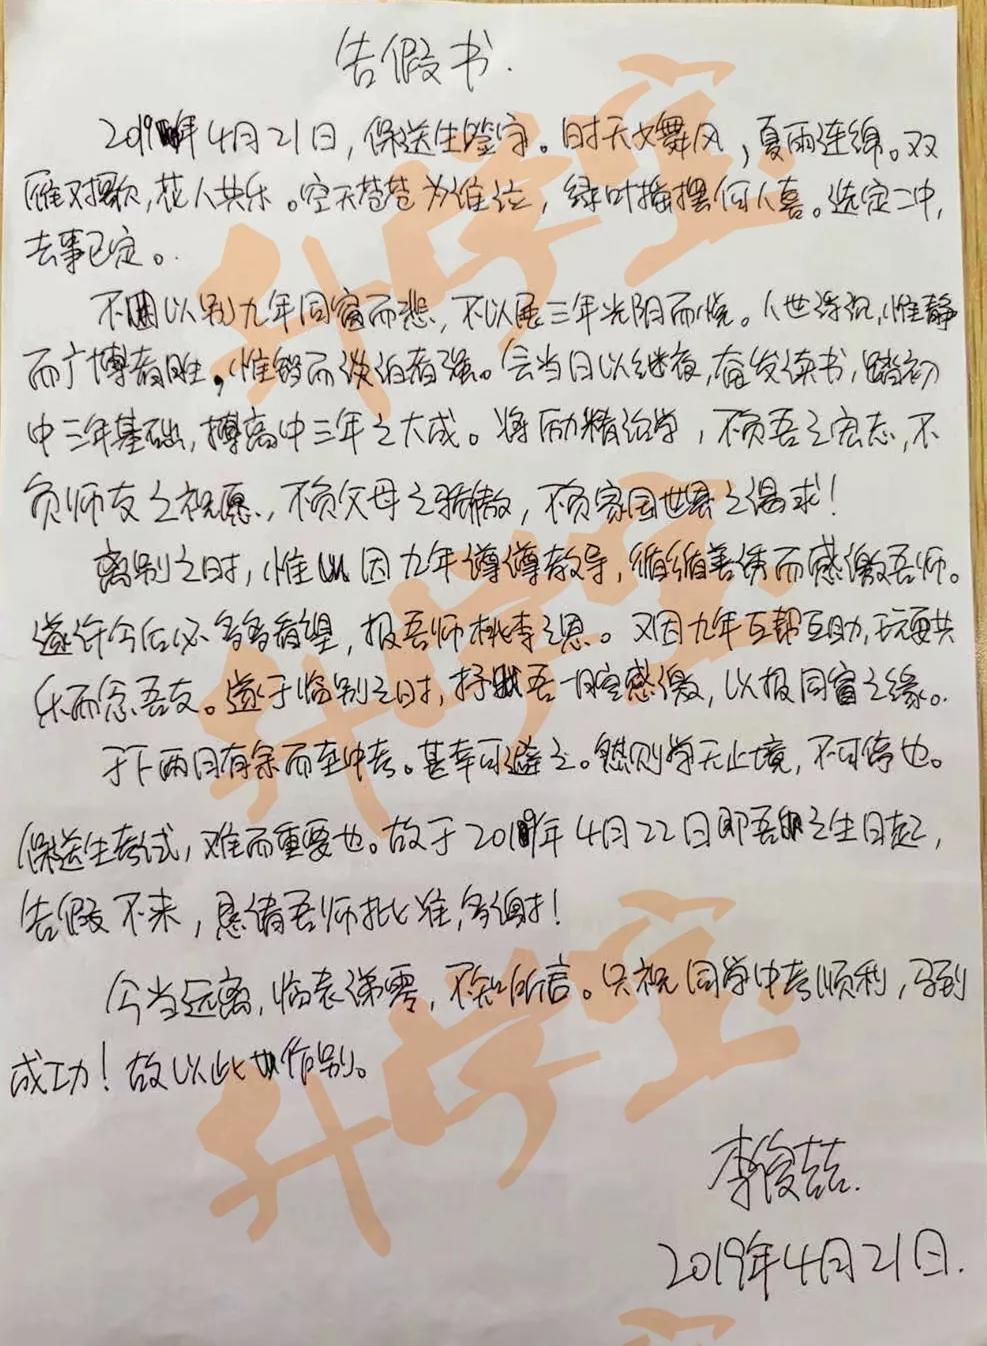 告假书.
2019年4月21日,保送生鉴字。时天女舞风,夏雨连绵。双
雁对歌,花人共乐。空天苍苍为谁泣,绿叶摇摆何人喜。选定二中,
去事已定。
不以别九年同窗而悲,不以展三年光阴而悦。人世浮沉,惟静
而广博者胜,惟毅而淡泊者强。会当日以继夜,奋发读书,踏初
中三年基础,搏高中三年之大成。将励精治学,不负吾之宏志,不
负师友之祝愿,不负父母之骄傲,不负家国世界之渴求!
离别之时,惟因九年谆谆教导,循循善诱而感激吾师。
遂许今后必多多看望,报吾师桃李之恩。又因九年互帮互助,玩耍共
乐而念吾友。遂于临别之时,抒吾一腔感激,以报同窗之缘。
于下两月有余而至中考。甚幸可避之。然则学无止境,不可停也。
保送生考试,难而重要也。故于2019年4月22日即吾之生日起,
告假不来,恳请吾师批准,多谢!
今当远离,临表涕零,不知所言。只祝同学中考顺利,马到
成功!故以此作别。
李俊喆.
2019年4月21日.
升学宝
升学宝
升学宝